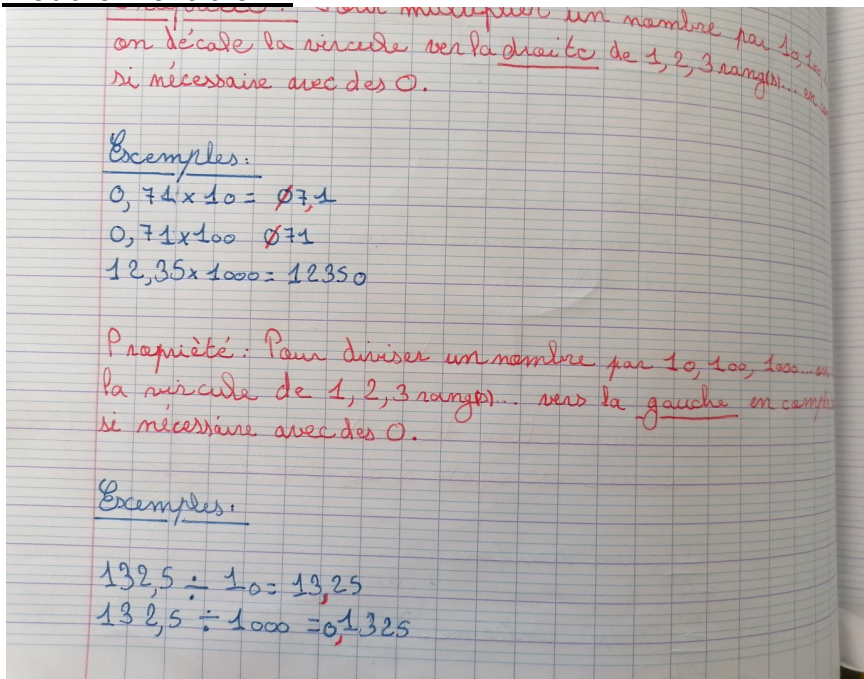 Pour multiplier un nombre par 10, 100,
on décale la vircule ver la droite de 1, 2, 3 rang(s)... en
si nécessaire avec des 0.
Excemples:
0,71 x 10 = 07,1
0,71x100 071
12,35x 1000 = 12350
Proprièté: Pour diviser un nombre par 10, 100, 1000...
la vircule de 1, 2, 3 rang(s)... vers la gauche en
si nécessaire avec des 0.
Excemples:
132,5 ÷ 10 = 13,25
132,5 ÷ 1000 = 0,1325